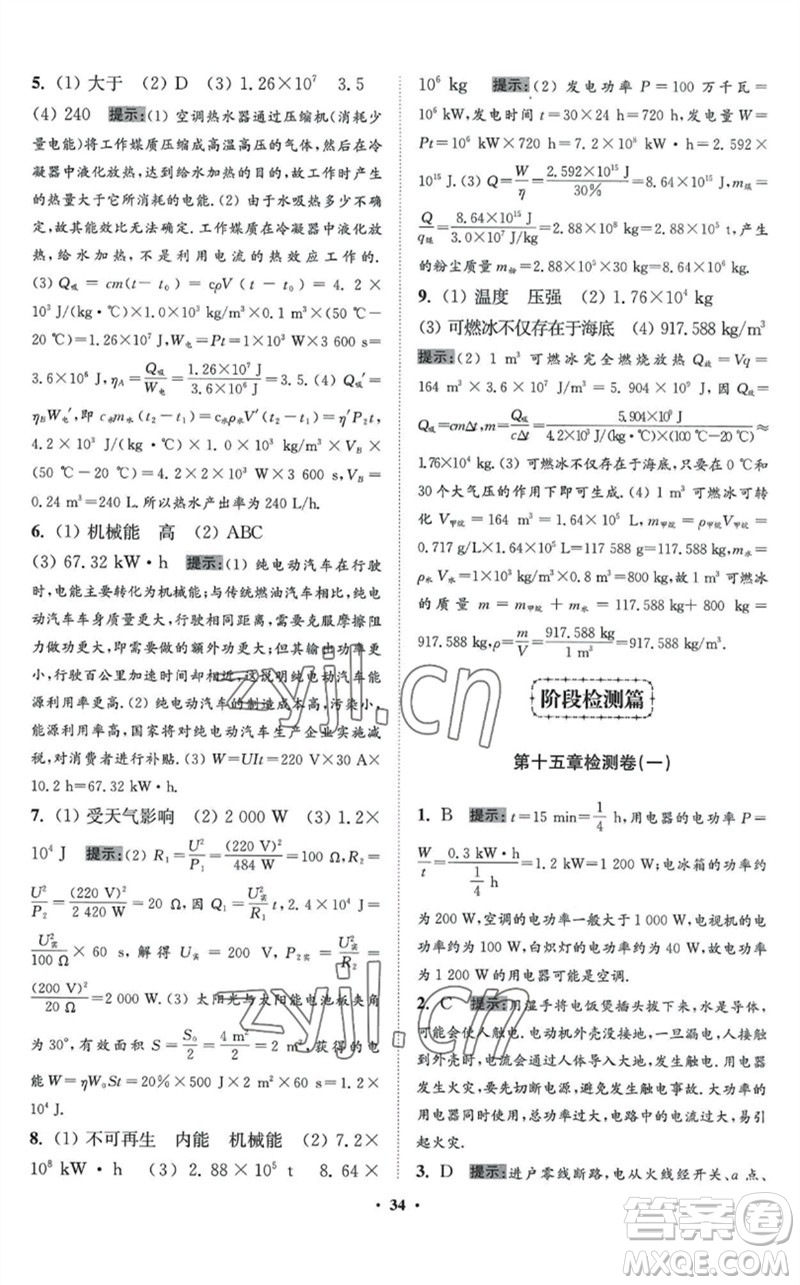 5. (1) 大于 (2) D (3) 1.26×10⁷ 3.5
(4) 240 提示:(1) 空调热水器通过压缩机(消耗少
量电能)将工作媒质压缩成高温高压的气体,然后在冷
凝器中液化放热,达到给水加热的目的,故工作时产生
的热量大于它所消耗的电能.(2) 由于水吸热多少不确
定,其能效比无法确定.工作媒质在冷凝器中液化放
热,给水加热,不是利用电流的热效应工作的.
(3) Q吸 = cm(t - t₀) = cρV (t - t₀) = 4.2 ×
10³ J/(kg·℃)×1.0×10³ kg/m³×0.1 m³×(50 ℃-
20 ℃)=1.26×10⁷ J,W电=Pt=1×10³ W×3 600 s=
3.6×10⁶ J,ηA=Q吸/W电=1.26×10⁷ J/3.6×10⁶ J=3.5.(4) Q吸′=
ηBW电′,即 c水m水(t₂-t₁)=c水ρ水V′(t₂-t₁)=η′P₂t,
4.2×10³ J/(kg·℃)×1.0×10³ kg/m³×VB×
(50 ℃-20 ℃)=4.2×2×10³ W×3 600 s,VB=
0.24 m³=240 L.所以热水产出率为240 L/h.
6. (1) 机械能 高 (2) ABC
(3) 67.32 kW·h 提示:(1) 纯电动汽车在行驶
时,电能主要转化为机械能;与传统燃油汽车相比,纯
电动汽车车身质量更大,行驶相同距离,克服摩擦阻
力做功更大,即需要做的额外功更大;但其输出功率更
大,行驶百公里加速时间却相近,这说明纯电动汽车能
源利用率更高.(2) 纯电动汽车的制造成本高,污染小,
能源利用率高,国家将对纯电动汽车生产企业实行减税,
对消费者进行补贴.(3) W=UIt=330 V×20 A×
10.2 h=67.32 kW·h.
7. (1) 受天气影响 (2) 2 000 W (3) 1.2×
10⁴ J 提示:(2) R₁=U²/P₁=(220 V)²/484 W=100 Ω,R₂=
U²/P₂=(220 V)²/2 420 W=20 Ω,因 Q₁=U实²/R₁ t,则 2.4×10⁴ J=
U实²/100 Ω×60 s,解得 U实=200 V,P₂实=U实²/R₂=
(200 V)²/20 Ω=2 000 W.(3) 太阳光与太阳能电池板夹角
为30°,有效面积 S=S₀/2=4 m²/2=2 m²,获得的电
能 W=ηW₀St=20%×500 J×2 m²×60 s=1.2×
10⁴ J.
8. (1) 不可再生 内能 机械能 (2) 7.2×
10⁸ kW·h (3) 2.88×10⁵ t 8.64×
10⁶ kg 提示:(2) 发电功率 P=100 万千瓦=
10⁶ kW,发电时间 t=30×24 h=720 h,发电量 W=
Pt=10⁶ kW×720 h=7.2×10⁸ kW·h=2.592×
10¹⁵ J.(3) Q=W/η=2.592×10¹⁵ J/30%=8.64×10¹⁵ J,m煤=
Q/q煤=8.64×10¹⁵ J/3.0×10⁷ J/kg=2.88×10⁸ kg=2.88×10⁵ t,产生
的粉尘质量 m粉=2.88×10⁸ kg×3%=8.64×10⁶ kg.
9. (1) 温度 压强 (2) 1.76×10⁴ kg
(3) 可燃冰不仅存在于海底 (4) 917.588 kg/m³
提示:(2) 1 m³ 可燃冰完全燃烧放热 Q放=Vq=
164 m³×3.6×10⁷ J/m³=5.904×10⁹ J,
Q吸=cmΔt,m=Q吸/cΔt=5.904×10⁹ J/4.2×10³ J/(kg·℃)×(100 ℃-20 ℃)≈
1.76×10⁴ kg.(3) 可燃冰不仅存在于海底,只要在0 ℃和
30个大气压的作用下即可生成.(4) 1 m³ 可燃冰可转
化 V甲烷=164 m³=1.64×10⁵ L,m甲烷=ρ甲烷V甲烷=
0.717 g/L×1.64×10⁵ L=117 588 g=117.588 kg,m水=
ρ水V水=1.0×10³ kg/m³×0.8 m³=800 kg;故1 m³ 可燃冰
的质量 m=m甲烷+m水=117.588 kg+800 kg=
917.588 kg,ρ=m/V=917.588 kg/1 m³=917.588 kg/m³.
阶段检测篇
第十五章检测卷(一)
1. B 提示:t=15 min=1/4 h,用电器的电功率 P=
W/t=0.3 kW·h/(1/4 h)=1.2 kW=1 200 W;电冰箱的功率约
为200 W,空调的电功率一般大于1 000 W,电视机的电
功率约为100 W,白炽灯的电功率约为40 W,故电功率
为1 200 W的用电器可能是空调.
2. C 提示:用湿手将电饭煲插头拔下来,水是导体,
可能会发生触电.电动机外壳没接地,一旦漏电,人接
触到外壳时,电流会通过人体,发生触电事故.用电器
发生火灾,要先切断电源,否则会发生触电事故.大功率
的用电器同时使用,总功率过大,电路中的电流过大,易引
起火灾.
3. D 提示:进户零线断路,电从火线经开关、a点、
• 34 •
zyjl.cn
zyjl.cn
答案圈
MXQE.COM